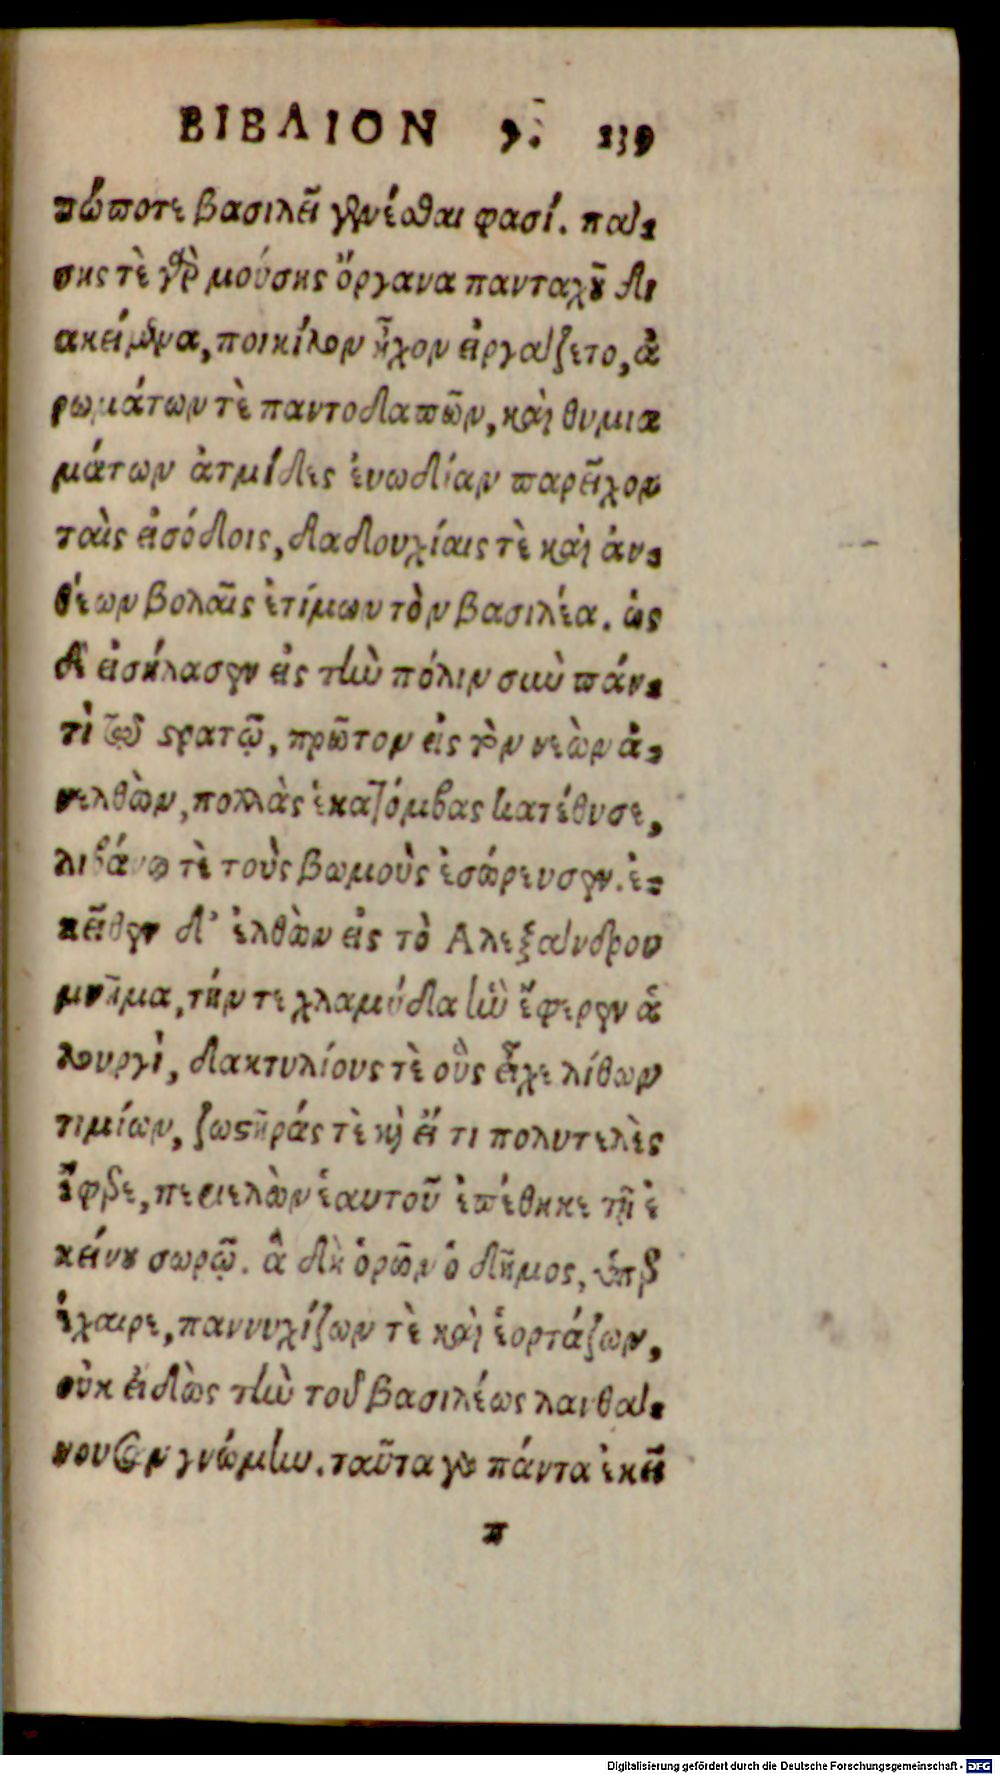 ΒΙΒΛΙΟΝ 5. 239
πώποτε βασιλεῖ γενέσθαι φασί. πά-
σης τὲ γὰρ μούσης ὄργανα πανταχοῦ δι
ακείμενα, ποικίλον ἦχον εἰργάζετο, ἀ
ρωμάτων τὲ παντοδαπῶν, καὶ θυμια
μάτων ἀτμίδες ἐυωδίαν παρεῖχον
ταῖς εἰσόδοις, δαδουχίαις τὲ καὶ ἀν-
θέων βολαῖς ἐτίμων τὸν βασιλέα. ὡς
δὲ εἰσήλασεν εἰς τὴν πόλιν σὺν πάν-
τὶ τῷ στρατῷ, πρῶτον εἰς τὸν νεὼν ἀ-
νελθὼν, πολλὰς ἑκατόμβας κατέθυσε,
λιβάνῳ τὲ τοὺς βωμοὺς ἐσώρευσεν. ἐ-
κεῖθεν δ' ἐλθὼν εἰς τὸ Αλεξάνδρου
μνῆμα, τήν τε χλαμύδα ἣν ἔφερεν ἁ
λουργῆ, δακτυλίους τὲ οὓς εἶχε λίθων
τιμίων, ζωστῆράς τὲ καὶ εἴ τι πολυτελὲς
ἔφερε, περιελὼν ἑαυτοῦ ἐπέθηκε τῇ ἐ
κείνου σωρῷ. ἃ δὴ ὁρῶν ὁ δῆμος, ὑπερ
έχαιρε, παννυχίζων τὲ καὶ ἑορτάζων,
οὐκ εἰδὼς τὴν τοῦ βασιλέως λανθά-
νουσαν γνώμην. ταῦτα γὰρ πάντα ἐκεῖ
π
Digitalisierung gefördert durch die Deutsche Forschungsgemeinschaft - DFG